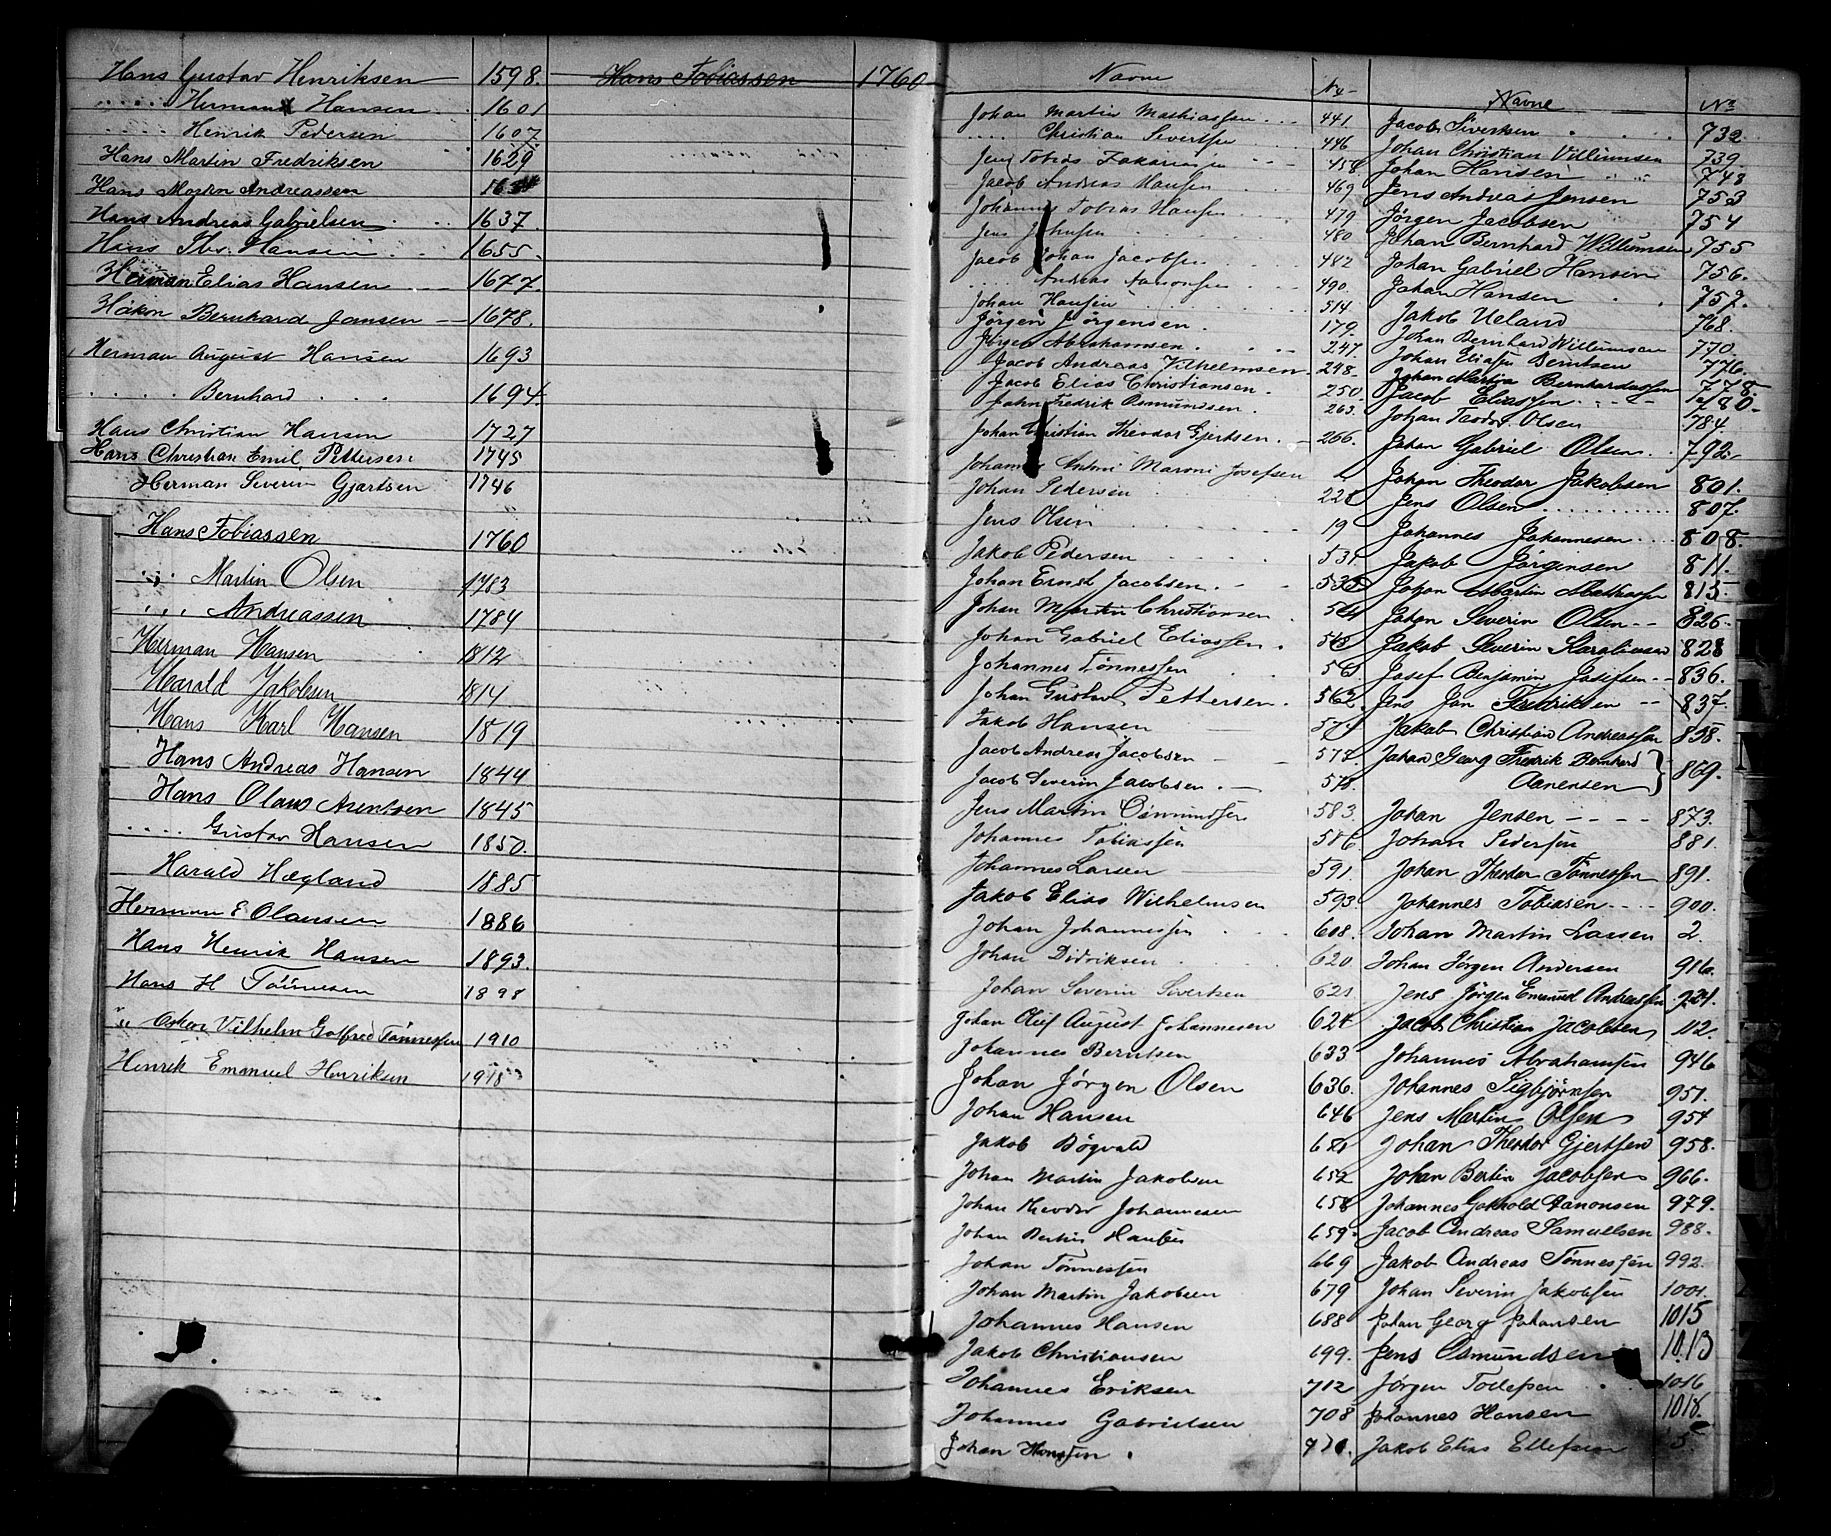 Hans Gustav Henriksen 1598.
..... Herman Hansen .. 1601
..... Henrik Pedersen 1607.
Hans Martin Fredriksen 1629
Hans Martin Andreassen
Hans Andreas Gabrielsen 1637.
Hans Hansen 1655.
Herman Elias Hansen 1677.
Håkon Bernhard Jansen 1678.
Herman August Hansen 1693
..... Bernhard .... 1694.
Hans Christian Hansen 1727
Hans Christian Emil Pettersen 1745
Herman Severin Gjertsen 1746
Hans Tobiassen 1760
... Martin Olsen 1783
... Andreassen 1784
Herman Hansen 1812
Harald Jakobsen 1814
Hans Karl Hansen 1819
Hans Andreas Hansen 1844
Hans Olaus Arentsen 1845
.... Gustav Hansen 1850.
Harald Hægland 1885
Herman E Olausen 1886
Hans Henrik Hansen 1893.
Hans H Tönnesen 1898
" Oskar Vilhelm Gotfred Tönnessen 1910
Henrik Emanuel Henriksen
Hans Tobiassen 1760
Navne No
Johan Martin Mathiassen ... 441
.... Christian Sivertsen 446
Jens Tobias Zakariasen 458.
Jacob Andreas Hansen 469
Johannes Tobias Hansen 479
Jens Johnsen 480
Jacob Johan Jacobsen 482
... Andreas Aanonsen 490.
Johan Hansen 514
Jörgen Jörgensen. 179.
Jörgen Abrahamsen. 247.
Jacob Andreas Vilhelmsen 248.
Jacob Elias Christiansen. 250.
John Fredrik Osmundsen. 263.
Johan Christian Theodor Gjertsen. 266.
Johannes Antoni Maroni Josefsen
Johan Pedersen
Jens Olsen 19
Jakob Pedersen 531.
Johan Ernst Jacobsen. 535
Johan Martin Christiansen
Johan Gabriel Eliassen.
Johannes Tönnessen
Johan Gustav Pettersen. 562.
Jakob Hansen 571
Jacob Andreas Jacobsen 572
Jacob Severin Jacobsen.
Jens Martin Osmundsen 583.
Johannes Tobiassen 586
Johannes Larsen 591.
Jakob Elias Wilhelmsen 593.
Johan Johannessen 608.
Johan Didriksen. 620
Johan Severin Sivertsen 621
Johan Oluf August Johannesen 624
Johannes Berntsen 633
Johan Jörgen Olsen 636.
Johan Hansen 646
Jakob Bögvald
Johan Martin Jakobsen 652
Johan Theodor Johannesen 658
Johan Bertin Hansen 659.
Johan Tönnessen 669
Johan Martin Jakobsen 679
Johannes Hansen 688
Jakob Christiansen 699.
Johannes Eriksen 712
Johannes Gabrielsen 708
Johan Hansen.
Navne No
Jacob Sivertsen 732
Johan Christian Villumsen 739.
Johan Hansen 748
Jens Andreas Jensen 753
Jörgen Jacobsen 754
Johan Bernhard Willumsen 755
Johan Gabriel Hansen 756.
Johan Hansen 757.
Jakob Ueland 768.
Johan Bernhard Willumsen 770.
Johan Eliassen Berntsen 776.
Johan Martin Bernhardassen 778.
Jacob Eliassen 780.
Johan Teodor Olsen 784.
Johan Gabriel Olsen. 792.
Johan Theodor Jakobsen 801.
Jens Olsen 807.
Johannes Johannesen 808.
Jakob Jörgensen 811.
Johan Martin Mathiassen 815.
Johan Severin Olsen 826.
Jakob Severin Karoliussen 828
Josef Benjamin Josefsen 836.
Jens Jan Fredriksen 837.
Jakob Christian Andreassen 858.
Johan Georg Fredrik Bernhard
Aanensen } 869.
Johan Jensen 873.
Johan Pedersen 881.
Johan Theodor Tönnessen 891.
Johannes Tobiasen 900.
Johan Martin Larsen 2.
Johan Jörgen Andersen 916.
Jens Jörgen Emanuel Andreassen 921.
Jacob Christian Jacobsen 112.
Johannes Abrahamsen 946
Johannes Sigbjörnsen 951.
Jens Martin Olsen 954
Johan Theodor Gjertsen 958.
Johan Bertin Jacobsen 966.
Johannes Gothold Aanonsen 979.
Jacob Andreas Samuelsen 988.
Jakob Andreas Tönnessen 992.
Johan Severin Jakobsen 1001.
Johan Georg Johansen 1015
Jens Osmundsen 1013
Jörgen Tollefsen 1016
Johannes Hansen 1018.
Jakob Elias Ellefsen 5.